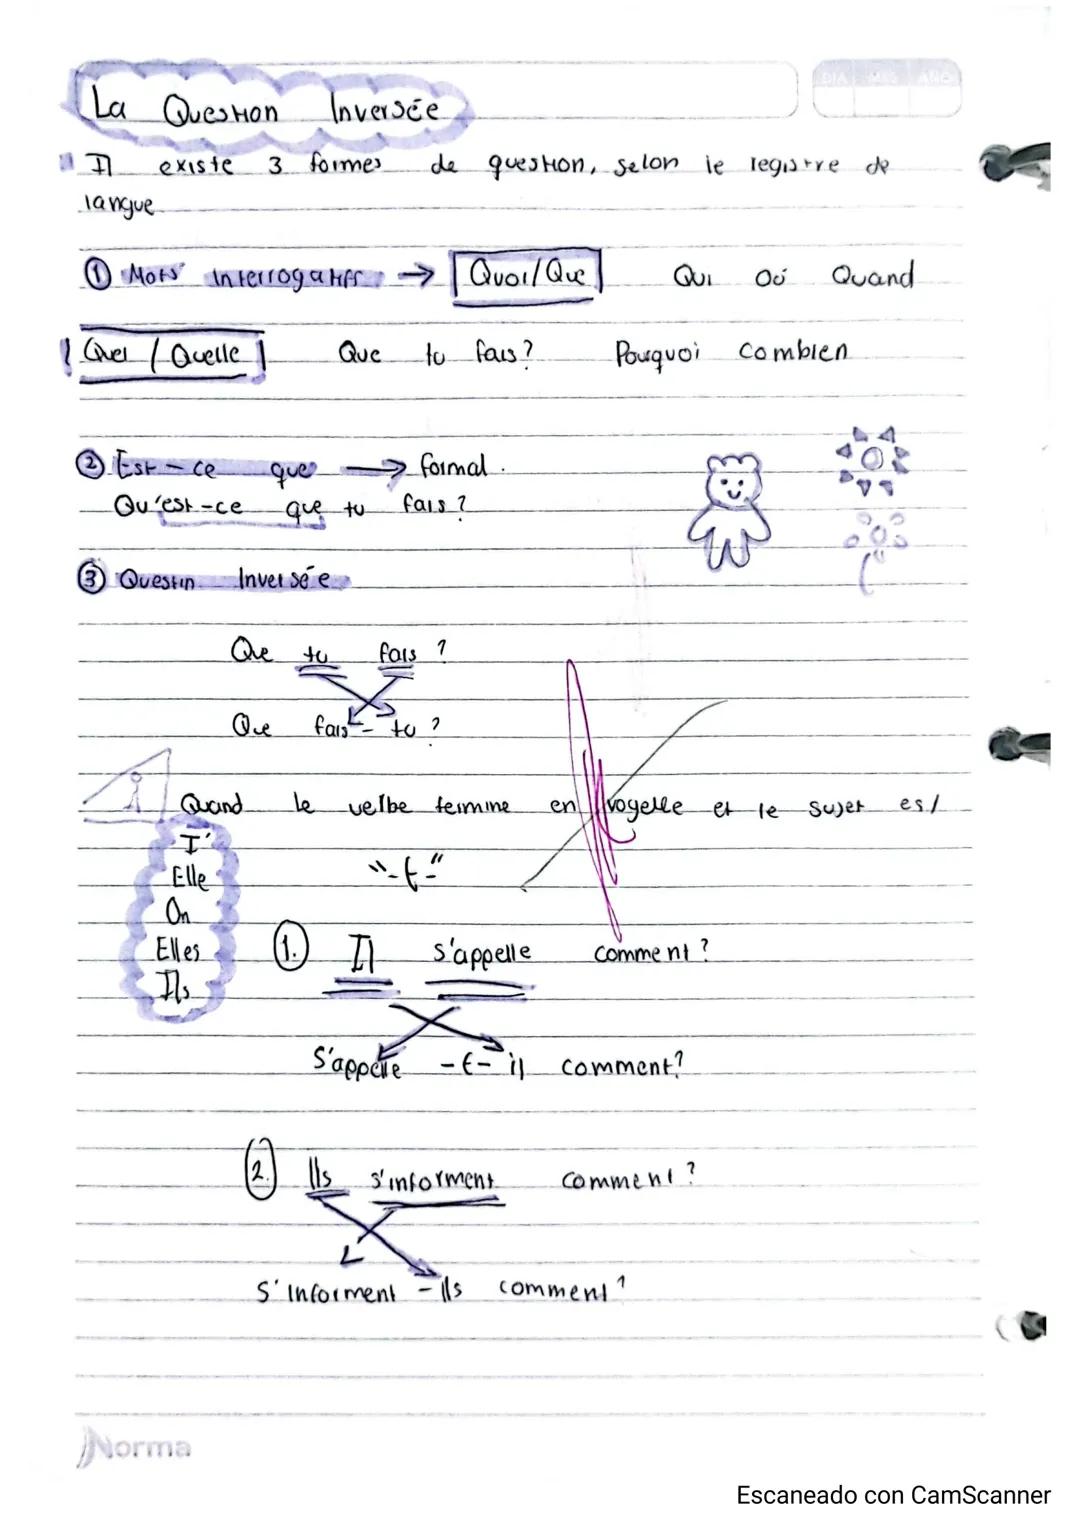 La Question Inversée
DIA MES AÑO
Il existe 3 formes de question, selon le registre de
langue
① Mots interrogatifs → Quoi/Que Qui Où Quand
Quel / Quelle Que tu fais? Pourquoi combien
② Est-ce que → formal.
Qu'est-ce que tu fais?
③ Question Inversée
Que tu fais ?
Que fais - tu ?
Quand le verbe termine en voyelle et le sujet est
I'
Elle
"-t-"
On
Elles
Ils
1. Il s'appelle comment?
S'appelle -t- il comment?
2. Ils s'informent comment?
S'informent - ils comment?
Norma
Escaneado con CamScanner